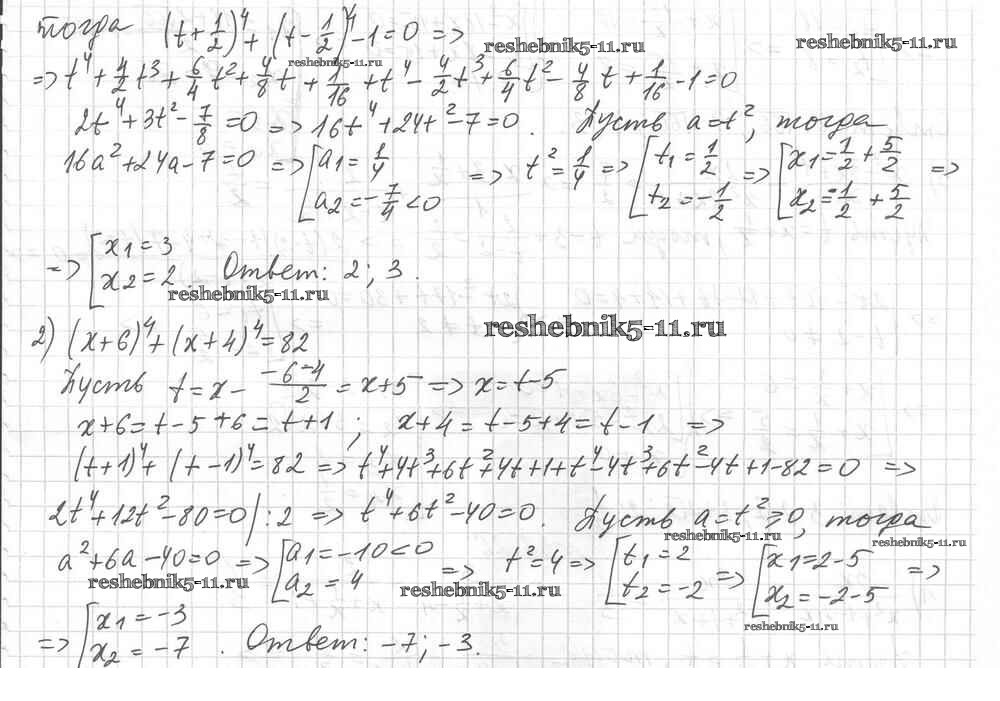 тогда (t+1/2)⁴+(t-1/2)⁴-1=0 =>
reshebnik5-11.ru
reshebnik5-11.ru
reshebnik5-11.ru
=> t⁴+4/2t³+6/4t²+4/8t+1/16+t⁴-4/2t³+6/4t²-4/8t+1/16-1=0
2t⁴+3t²-7/8=0 => 16t⁴+24t²-7=0. Пусть a=t², тогда
16a²+24a-7=0 => [a₁=1/4 a₂=-7/4<0 => t²=1/4 => [t₁=1/2 t₂=-1/2 => [x₁=1/2+5/2 x₂=-1/2+5/2 =>
=> [x₁=3 x₂=2. Ответ: 2; 3.
reshebnik5-11.ru
reshebnik5-11.ru
2) (x+6)⁴+(x+4)⁴=82
Пусть t=x-(-6-4)/2=x+5 => x=t-5
x+6=t-5+6=t+1; x+4=t-5+4=t-1 =>
(t+1)⁴+(t-1)⁴=82 => t⁴+4t³+6t²+4t+1+t⁴-4t³+6t²-4t+1-82=0 =>
2t⁴+12t²-80=0|:2 => t⁴+6t²-40=0. Пусть a=t²≥0, тогда
reshebnik5-11.ru
reshebnik5-11.ru
a²+6a-40=0 => [a₁=-10<0 a₂=4 => t²=4 => [t₁=2 t₂=-2 => [x₁=2-5 x₂=-2-5 =>
reshebnik5-11.ru
reshebnik5-11.ru
reshebnik5-11.ru
=> [x₁=-3 x₂=-7. Ответ: -7; -3.